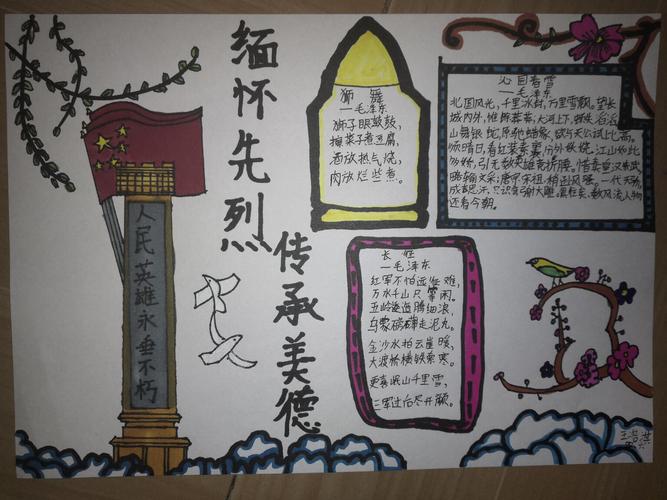 缅怀先烈
传承美德
人民英雄永垂不朽
狮舞
—毛泽东
狮子眼鼓鼓,
擦菜子煮豆腐,
酒放热气烧,
肉放烂些煮。
沁园春雪
—毛泽东
北国风光,千里冰封,万里雪飘。望长
城内外,惟馀莽莽,大河上下,顿失滔滔。
山舞银蛇,原驰蜡象,欲与天公试比高。
须晴日,看红装素裹,分外妖娆。江山如此
多娇,引无数英雄竞折腰。惜秦皇汉武,
略输文采;唐宗宋祖,稍逊风骚。一代天骄,
成吉思汗,只识弯弓射大雕。俱往矣,数风流人物
还看今朝。
长征
—毛泽东
红军不怕远征难,
万水千山只等闲。
五岭逶迤腾细浪,
乌蒙磅礴走泥丸。
金沙水拍云崖暖,
大渡桥横铁索寒。
更喜岷山千里雪,
三军过后尽开颜。
王浩淇